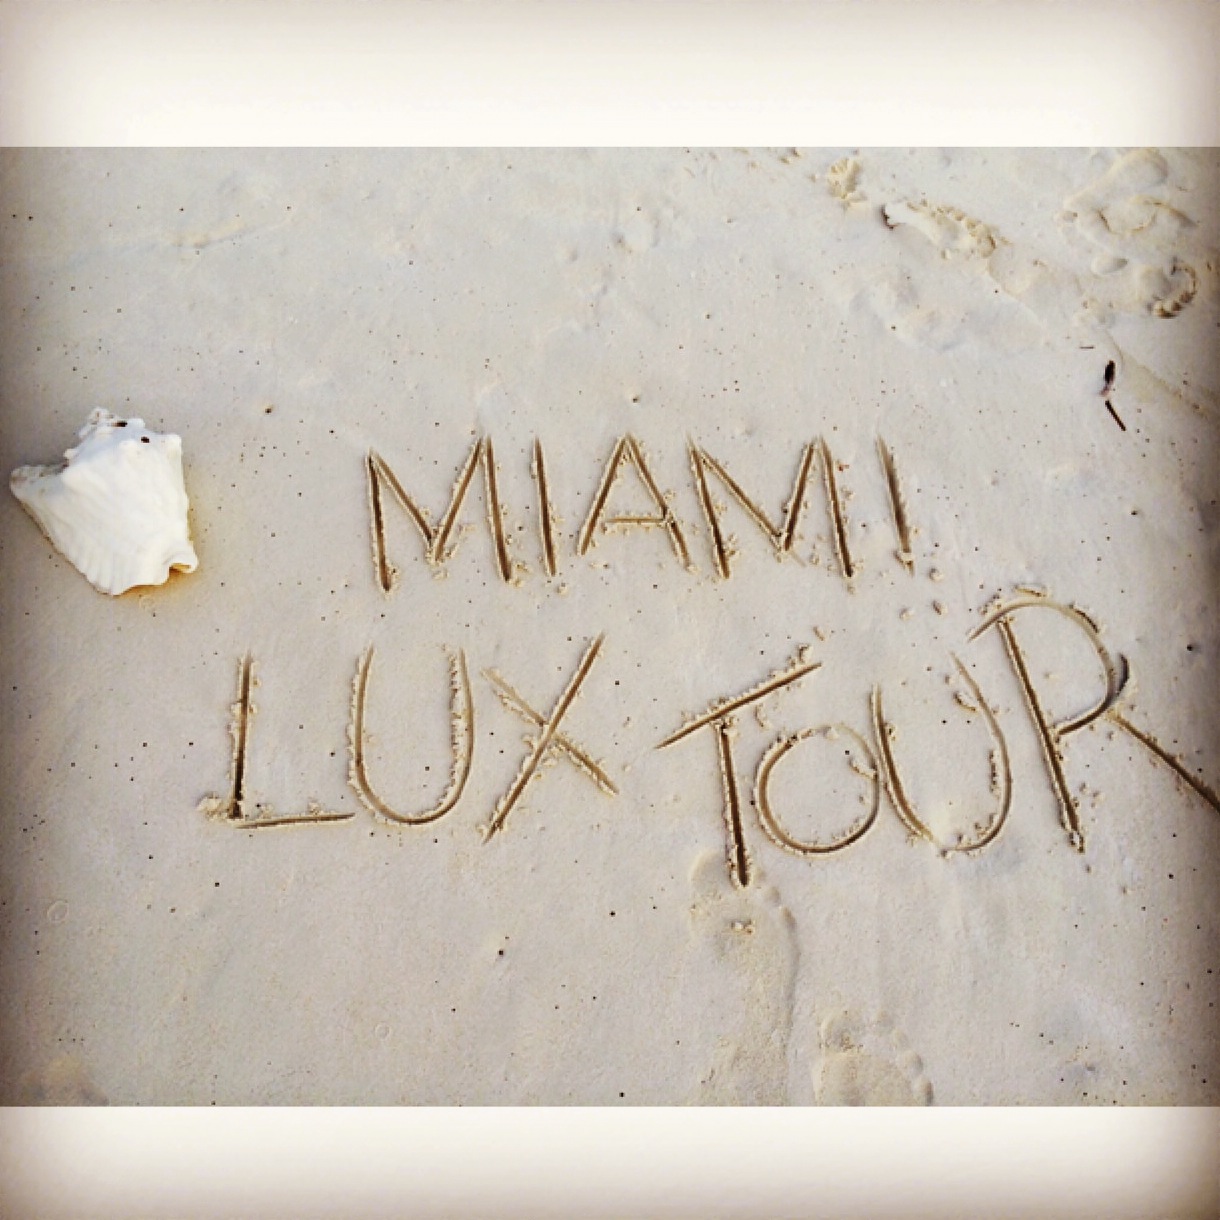 MIAMI
LUX TOUR